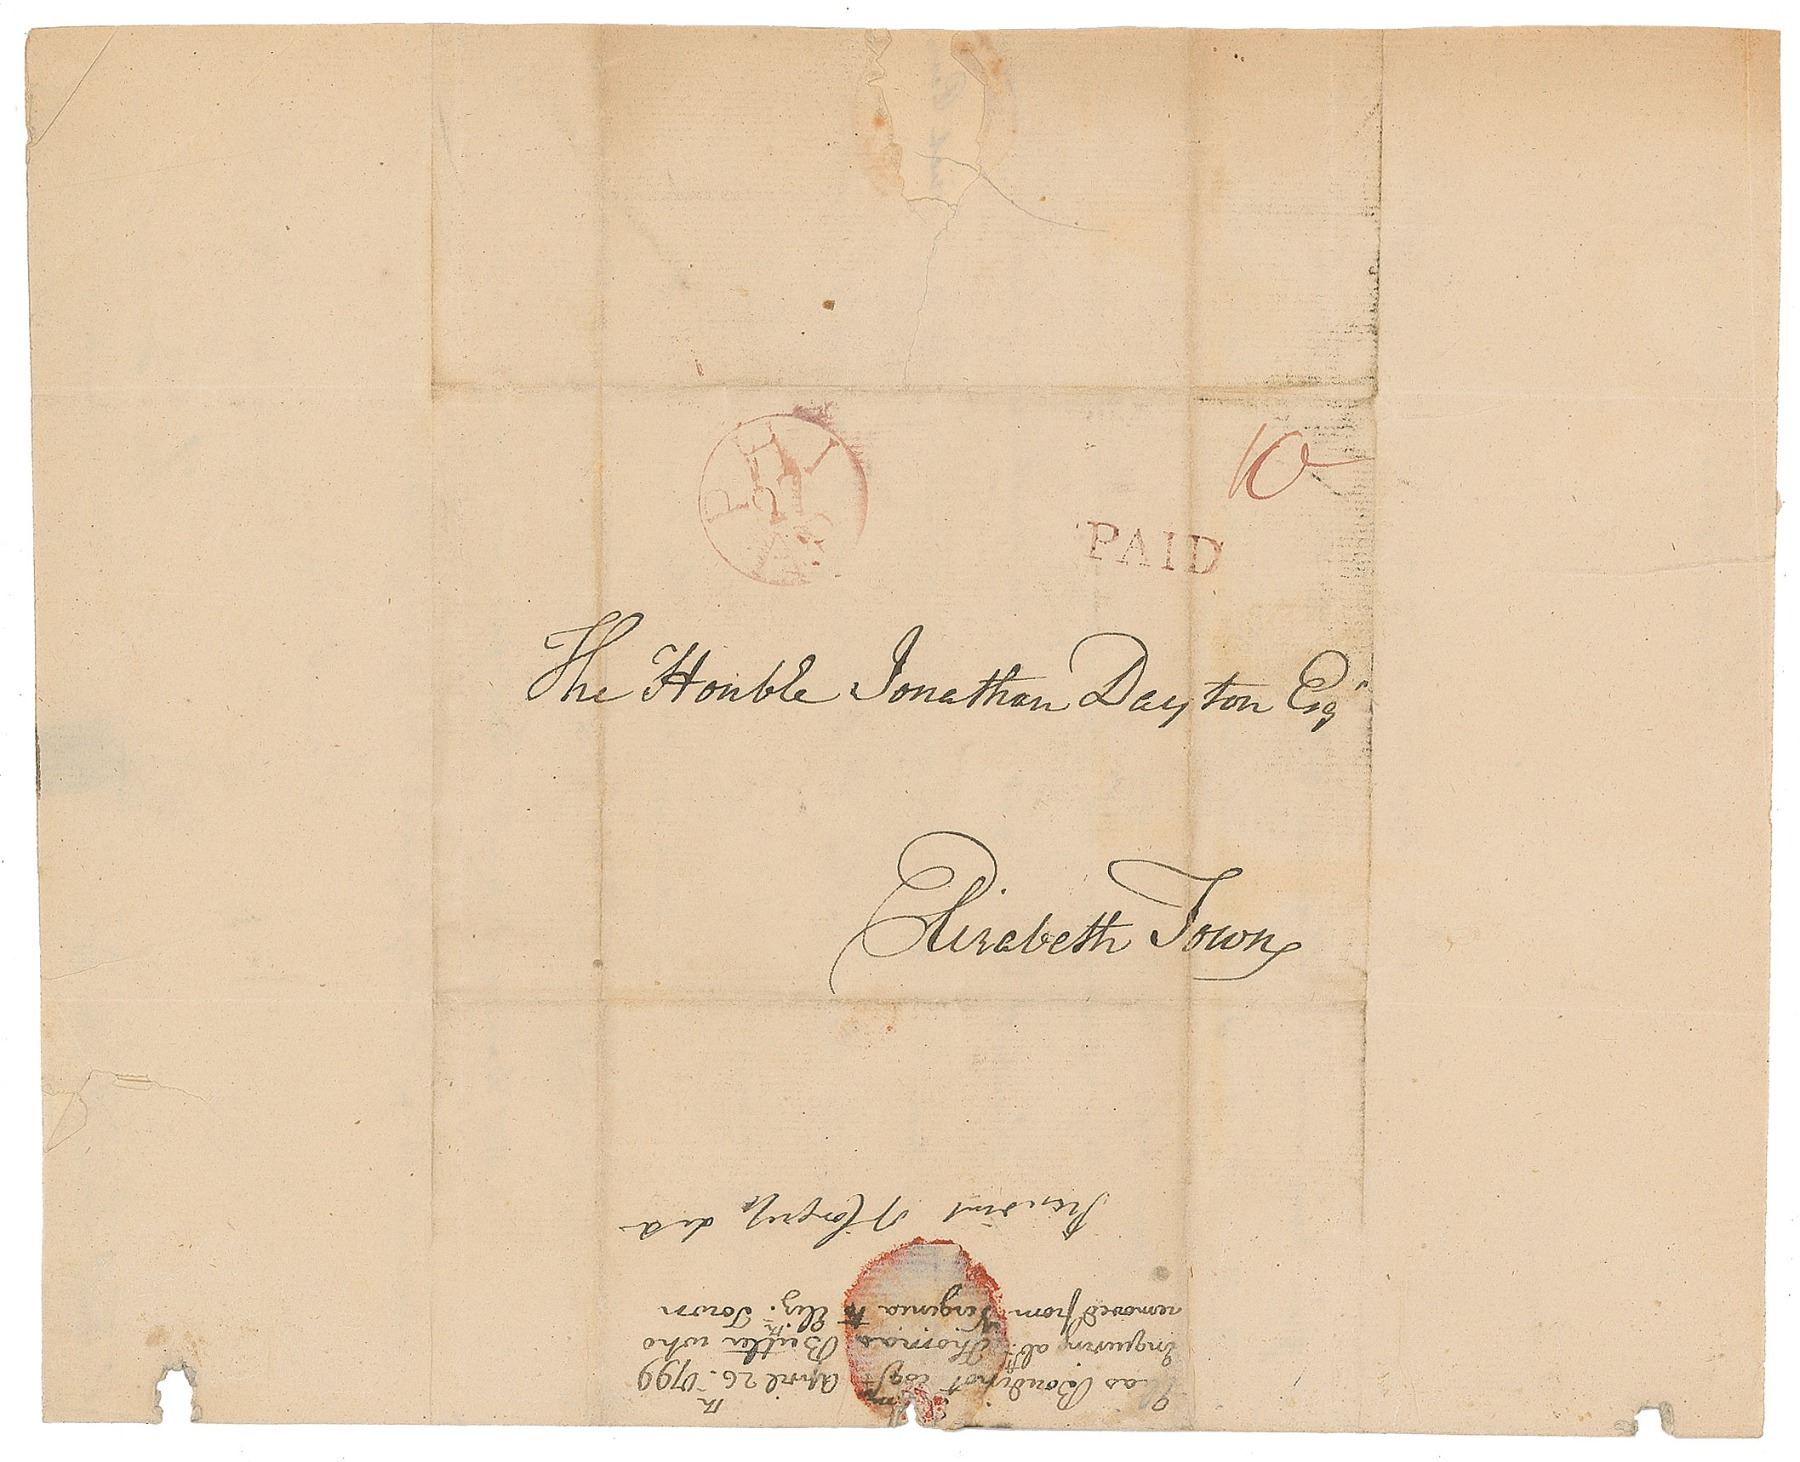 10
PAID
The Honble Jonathan Dayton Esqr
Elizabeth Town
Elias Boudinot Esqr April 26th 1799
Inquiring abt. Thomas Butler who
removed from Virginia to Eliz. Town
President of Congress did